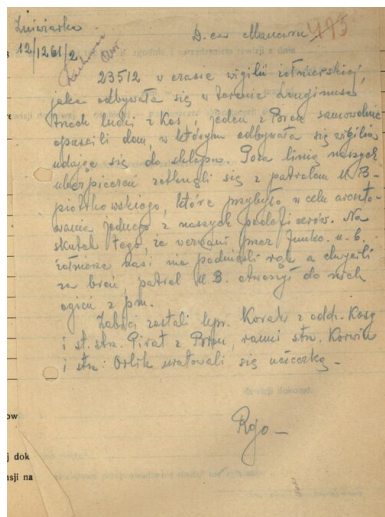 Żniwiarka
12/12.61/2
D-ca Mamonu
495
23 5 12 w czasie wigilii żołnierskiej,
jaka odbywała się w terenie
trzech ludzi z Kos, i jeden z Porem samowolnie
opuścili dom, w którym odbywała się wigilia
udając się do sklepu. Poza linią naszych
ubezpieczeń zetknęli się z patrolem U.B-
piotrkowskiego, które przybyło w celu areszto-
wania jednego z naszych podoficerów. Na
skutek tego, że wezwani przez funkc. u.b.
żołnierze nasi nie podnieśli rąk a chwycili
za broń, patrol U B. otworzył do nich
ogień z p.m.
Zabici zostali kpr. Korab z oddz. Kosy
i st. strz. Pirat z Poremu, ranni strz. Korwin
i strz. Orlik uratowali się ucieczką.-
Rojo-
ow
j dok
nsji na